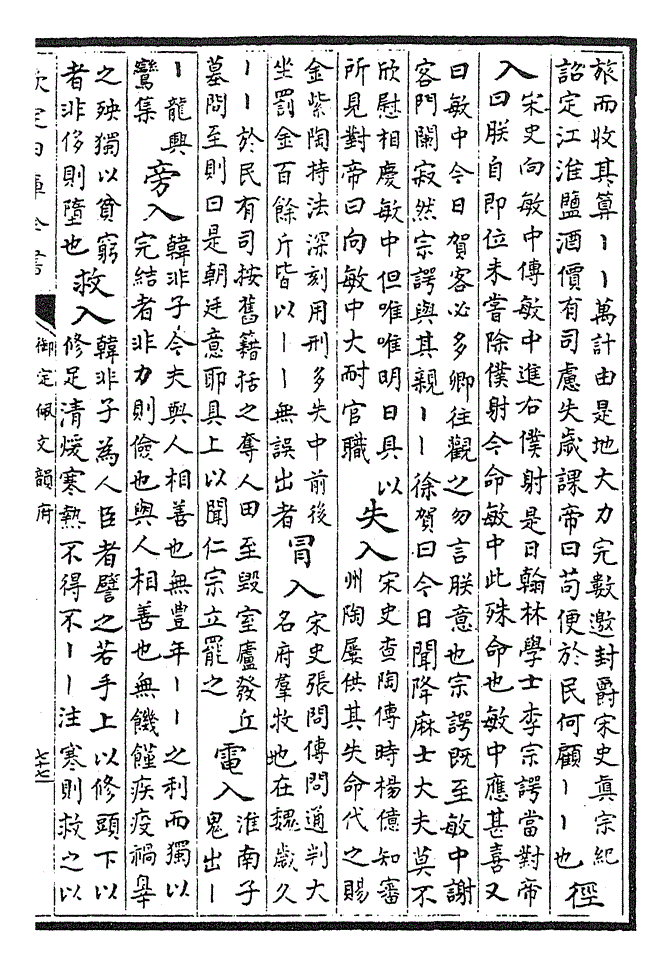 旅而收其算丨丨萬計由是地大力完數邀封爵宋史真宗紀
詔定江淮鹽酒價有司慮失歲課帝曰苟便於民何顧丨丨也
徑
入
宋史向敏中傳敏中進右僕射是日翰林學士李宗諤當對帝
曰朕自即位未嘗除僕射今命敏中此殊命也敏中應甚喜又
曰敏中今日賀客必多卿往觀之勿言朕意也宗諤既至敏中謝
客門闌寂然宗諤與其親丨丨徐賀曰今日聞降麻士大夫莫不
欣慰相慶敏中但唯唯明日具以
所見對帝曰向敏中大耐官職
失入
宋史查陶傳時楊億知審
州陶屢供其失命代之賜
金紫陶持法深刻用刑多失中前後
坐罰金百餘斤皆以丨丨無誤出者
冒入
宋史張問傳問通判大
名府羣牧地在魏歲久
丨丨於民有司按舊籍括之奪人田至毀室廬發丘
墓問至則曰是朝廷意耶具上以聞仁宗立罷之
電入
淮南子
鬼出丨
丨龍興
鸞集
旁入
韓非子今夫與人相善也無豐年丨丨之利而獨以
完結者非力則儉也與人相善也無饑饉疾疫禍辠
之殃獨以貧窮
者非侈則墮也
救入
韓非子為人臣者譬之若手上以修頭下以
修足清煖寒熱不得不丨丨注寒則救之以
欽定四庫全書
御定佩文韻府
七十七